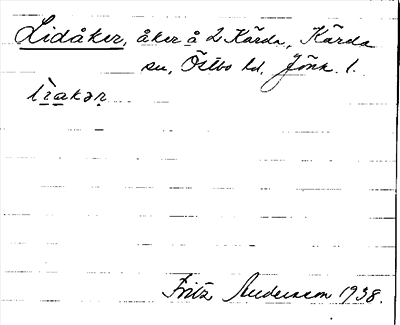 Lidåker, åker å 2 Kärda, Kärda
sn, Östbo hd, Jönk. l.
lìakər
Fritz Andersson 1938.